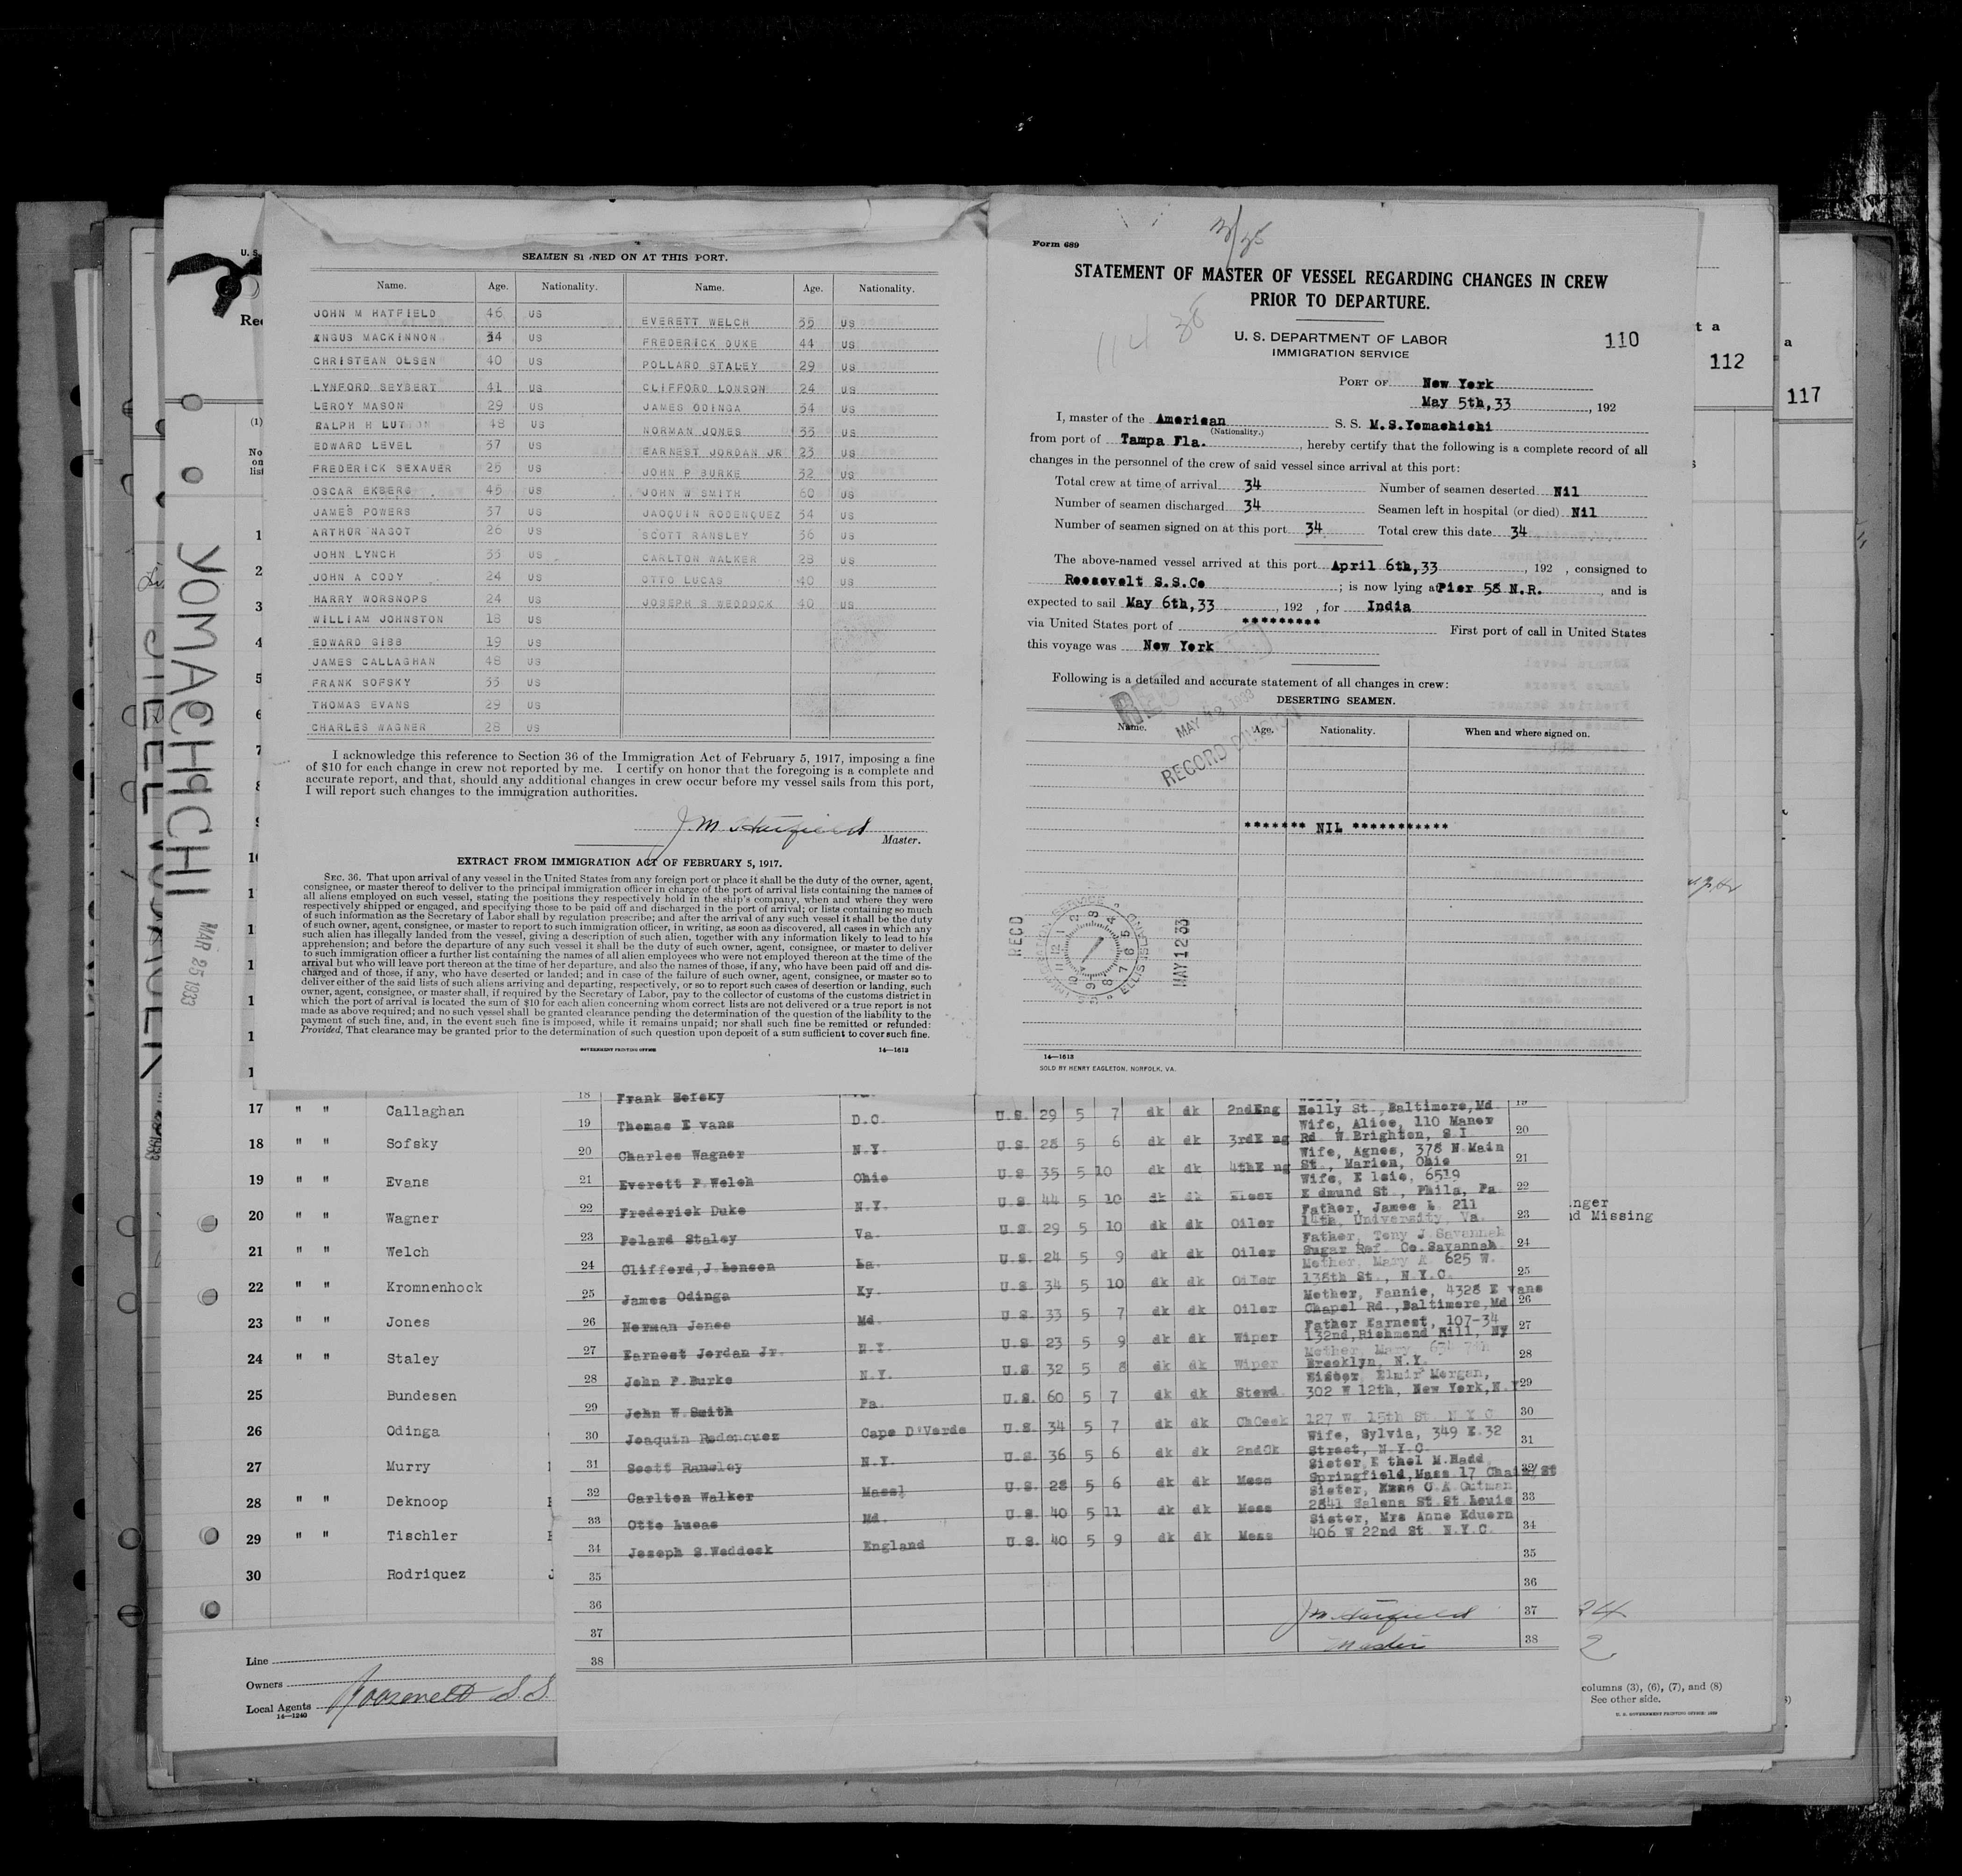 SEAMEN SI NED ON AT THIS PORT.
Name. Age. Nationality. Name. Age. Nationality.
JOHN M HATFIELD 46 US EVERETT WELCH 35 US
ANGUS MACKINNON 34 US FREDERICK DUKE 44 US
CHRISTEAN OLSEN 40 US POLLARD STALEY 29 US
LYNFORD SEYBERT 41 US CLIFFORD LONSON 24 US
LEROY MASON 29 US JAMES ODINGA 34 US
RALPH H LUTTON 48 US NORMAN JONES 33 US
EDWARD LEVEL 37 US EARNEST JORDAN JR 23 US
FREDERICK SEXAUER 25 US JOHN P BURKE 32 US
OSCAR EKBERG 45 US JOHN W SMITH 60 US
JAMES POWERS 37 US JAOQUIN RODENQUEZ 34 US
ARTHUR NAGOT 26 US SCOTT RANSLEY 36 US
JOHN LYNCH 33 US CARLTON WALKER 28 US
JOHN A CODY 24 US OTTO LUCAS 40 US
HARRY WORSNOPS 24 US JOSEPH S WEDDOCK 40 US
WILLIAM JOHNSTON 18 US
EDWARD GIBB 19 US
JAMES CALLAGHAN 48 US
FRANK SOFSKY 33 US
THOMAS EVANS 29 US
CHARLES WAGNER 28 US
I acknowledge this reference to Section 36 of the Immigration Act of February 5, 1917, imposing a fine
of $10 for each change in crew not reported by me. I certify on honor that the foregoing is a complete and
accurate report, and that, should any additional changes in crew occur before my vessel sails from this port,
I will report such changes to the immigration authorities.
J. M. Hatfield
Master.
EXTRACT FROM IMMIGRATION ACT OF FEBRUARY 5, 1917.
SEC. 36. That upon arrival of any vessel in the United States from any foreign port or place it shall be the duty of the owner, agent,
consignee, or master thereof to deliver to the principal immigration officer in charge of the port of arrival lists containing the names of
all aliens employed on such vessel, stating the positions they respectively hold in the ship's company, when and where they were
respectively shipped or engaged, and specifying those to be paid off and discharged in the port of arrival; or lists containing so much
of such information as the Secretary of Labor shall by regulation prescribe; and after the arrival of any such vessel it shall be the duty
of such owner, agent, consignee, or master to report to such immigration officer, in writing, as soon as discovered, all cases in which any
such alien has illegally landed from the vessel, giving a description of such alien, together with any information likely to lead to his
apprehension; and before the departure of any such vessel it shall be the duty of such owner, agent, consignee, or master to deliver
to such immigration officer a further list containing the names of all alien employees who were not employed thereon at the time of the
arrival but who will leave port thereon at the time of her departure, and also the names of those, if any, who have been paid off and dis-
charged and of those, if any, who have deserted or landed; and in case of the failure of such owner, agent, consignee, or master so to
deliver either of the said lists of such aliens arriving and departing, respectively, or so to report such cases of desertion or landing, such
owner, agent, consignee, or master shall, if required by the Secretary of Labor, pay to the collector of customs of the customs district in
which the port of arrival is located the sum of $10 for each alien concerning whom correct lists are not delivered or a true report is not
made as above required; and no such vessel shall be granted clearance pending the determination of the question of the liability to the
payment of such fine, and, in the event such fine is imposed, while it remains unpaid; nor shall such fine be remitted or refunded:
Provided, That clearance may be granted prior to the determination of such question upon deposit of a sum sufficient to cover such fine.
GOVERNMENT PRINTING OFFICE 14—1613
Form 689
STATEMENT OF MASTER OF VESSEL REGARDING CHANGES IN CREW
PRIOR TO DEPARTURE.
U. S. DEPARTMENT OF LABOR
IMMIGRATION SERVICE
110
PORT OF New York
May 5th,33 , 192
I, master of the American S. S. M.S.Yomachichi
(Nationality.)
from port of Tampa Fla. , hereby certify that the following is a complete record of all
changes in the personnel of the crew of said vessel since arrival at this port:
Total crew at time of arrival 34 Number of seamen deserted Nil
Number of seamen discharged 34 Seamen left in hospital (or died) Nil
Number of seamen signed on at this port 34 Total crew this date 34
The above-named vessel arrived at this port April 6th,33 , 192 , consigned to
Roosevelt S.S.Co ; is now lying at Pier 58 N.R. , and is
expected to sail May 6th,33 , 192 , for India
via United States port of ********* First port of call in United States
this voyage was New York
Following is a detailed and accurate statement of all changes in crew:
DESERTING SEAMEN.
Name. Age. Nationality. When and where signed on.
******* NIL ***********
RECORD DIVISION
RECD
MAY 12 33
ELLIS ISLAND
14—1613
SOLD BY HENRY EAGLETON, NORFOLK, VA.
t a
112
a
117
U. S.
Rec
YOMACHICHI
MAR 25 1933
17 " " Callaghan
18 " " Sofsky
19 " " Evans
20 " " Wagner
21 " " Welch
22 " " Kromnenhock
23 " " Jones
24 " " Staley
25 Bundesen
26 Odinga
27 Murry
28 " " Deknoop
29 " " Tischler
30 Rodriquez
Line
Owners
Local Agents Roosevelt S.S.
14—1240
18 Frank Sofsky
19 Thomas E vans D.C. U.S. 29 5 7 dk dk 2ndEng Holly St.,Baltimore,Md
20 Charles Wagner N.Y. U.S. 28 5 6 dk dk 3rdE ng Wife, Alice, 110 Manor
Rd. W.Brighton, S.I. 20
21 Everett P.Welch Ohio U.S 35 5 10 dk dk 4thE ng Wife, Agnes, 378 N.Main
St., Marion, Ohio 21
22 Frederick Duke N.Y. U.S. 44 5 10 dk dk Wife, E lsie, 6519
E dmund St., Phila, Pa. 22
23 Polard Staley Va. U.S. 29 5 10 dk dk Oiler Father, James L. 211
14th, University, Va. 23
24 Clifford,J.Lonson La. U.S. 24 5 9 dk dk Oiler Father, Tony J.Savannah
Sugar Ref. Co.Savannah. 24
25 James Odinga Ky. U.S. 34 5 10 dk dk Oiler Mother, Mary A. 625 W.
138th St., N.Y.C. 25
26 Norman Jones Md. U.S. 33 5 7 dk dk Oiler Mother, Fannie, 4328 E vans
Chapel Rd.,Baltimore,Md 26
27 Earnest Jordan Jr. N.Y. U.S. 23 5 9 dk dk Wiper Father Earnest, 107-34
132nd,Richmond Hill, Ny 27
28 John P.Burke N.Y. U.S. 32 5 8 dk dk Wiper Mother, Mary,
Brooklyn, N.Y. 28
29 John W.Smith Pa. U.S. 60 5 7 dk dk Stewd. Sister, Elmir Morgan,
302 W 12th, New York,N.Y 29
30 Joaquin Rodenquez Cape D'Verde U.S. 34 5 7 dk dk ChCook 127 W. 15th St. N.Y.C. 30
31 Scott Ransley N.Y. U.S. 36 5 6 dk dk 2ndCk Wife, Sylvia, 349 E.32
Street, N.Y.C. 31
32 Carlton Walker Mass. U.S. 28 5 6 dk dk Mess Sister, E thel M.Hadd
Springfield,Mass.17 St 32
33 Otto Lucas Md. U.S. 40 5 11 dk dk Mess Sister, C.A.Gutman
2841 Salena St.St.Louis 33
34 Joseph S.Weddock England U.S. 40 5 9 dk dk Mess Sister, Mrs Anne Eduern
406 W 22nd St. N.Y.C. 34
35 35
36 36
37 J M Hatfield 37
38 Master 38
nger
d Missing
24
2
columns (3), (6), (7), and (8)
See other side.
U. S. GOVERNMENT PRINTING OFFICE